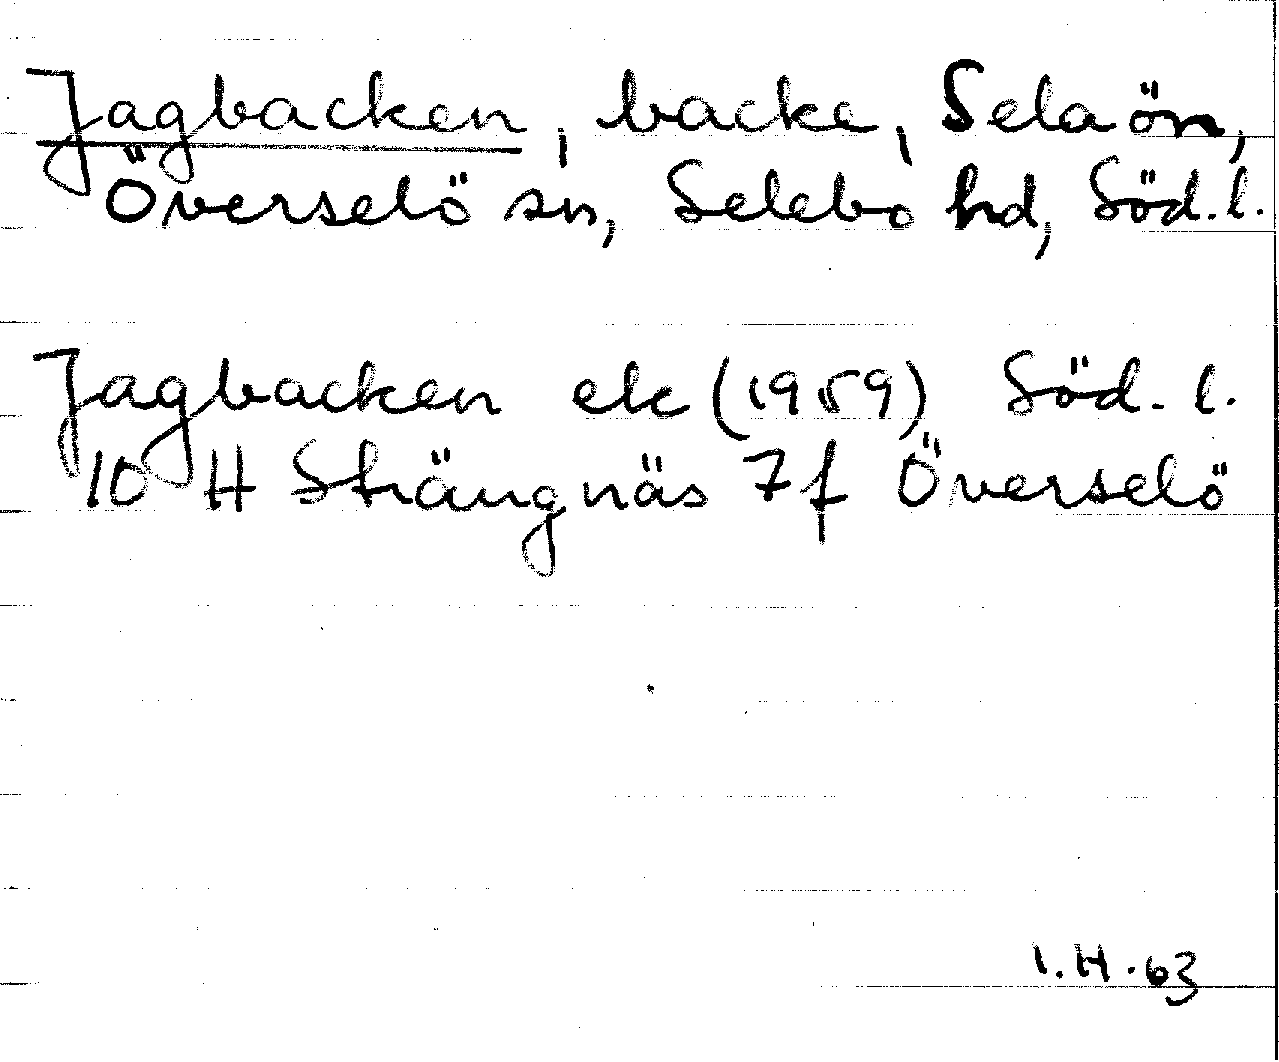 Jagbacken, backe, Selaön,
Överselö sn, Selebo hd, Söd. l.
Jagbacken ek (1959) Söd. l.
10 H Strängnäs 7f Överselö
I.H.63